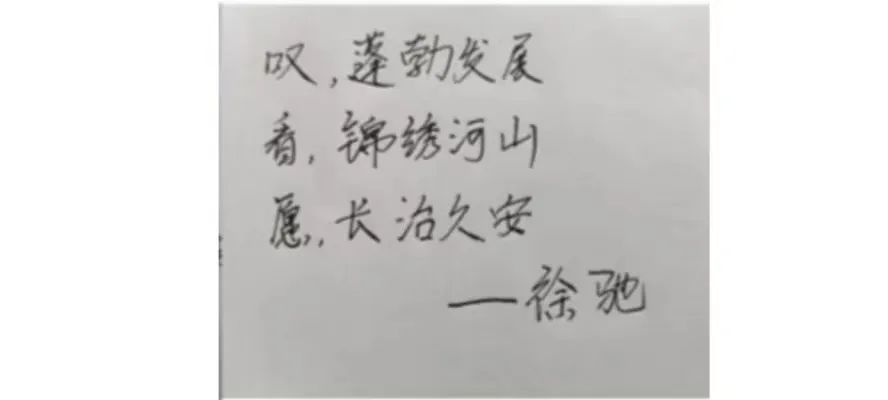 叹,蓬勃发展
看,锦绣河山
愿,长治久安
——徐驰